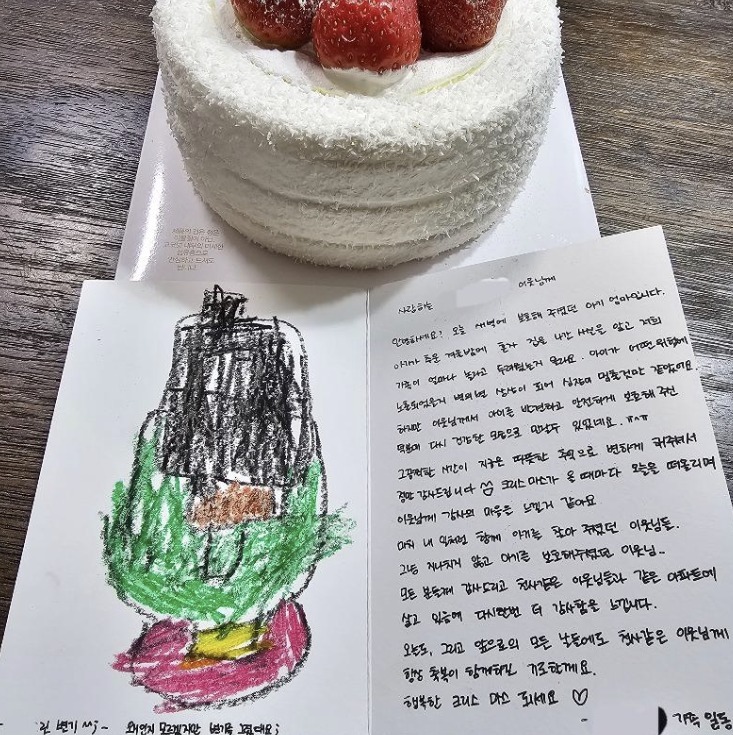 사랑하는 이웃님께
안녕하세요? 오늘 새벽에 보호해 주셨던 아기 엄마입니다.
아이가 추운 겨울밤에 홀로 집을 나간 사실을 알고 저희
가족이 얼마나 놀라고 두려웠는지 몰라요. 아이가 어떤 위험에
노출되었을지 별의별 상상이 되어 심장이 멈출것만 같았어요.
하지만 이웃님께서 아이를 발견하고 안전하게 보호해 주신
덕분에 다시 건강한 모습으로 만날수 있었네요. ㅠㅅㅠ
그 끔찍한 시간이 지금은 따뜻한 추억으로 변하게 해주셔서
정말 감사드립니다 크리스마스가 올 때마다 오늘을 떠올리며
이웃님께 감사의 마음을 느낄거 같아요
마치 내 일처럼 함께 아기를 찾아 주셨던 이웃님들.
그냥 지나치지 않고 아기를 보호해주셨던 이웃님..
모든 분들께 감사드리고 천사같은 이웃님들과 같은 아파트에
살고 있음에 다시한번 더 감사함을 느낍니다.
오늘도, 그리고 앞으로의 모든 날들에도 천사같은 이웃님께
항상 축복이 함께하길 기도할게요.
행복한 크리스마스 되세요 ♡
- 가족 일동
린 변기 ^^;~ 왜인지 모르겠지만 변기를 그렸대요;